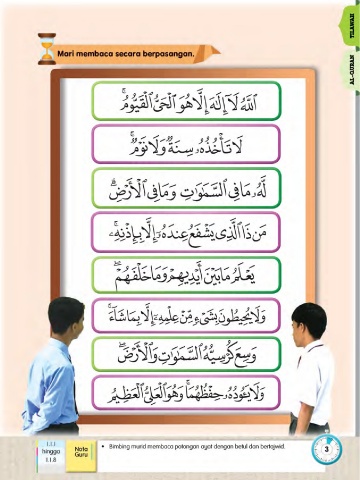 TILAWAH
AL-QURAN
Mari membaca secara berpasangan.
ٱللَّهُ لَآ إِلَٰهَ إِلَّا هُوَ ٱلْحَىُّ ٱلْقَيُّومُ ۚ
لَا تَأْخُذُهُۥ سِنَةٌ وَلَا نَوْمٌ ۚ
لَّهُۥ مَا فِى ٱلسَّمَٰوَٰتِ وَمَا فِى ٱلْأَرْضِ ۗ
مَن ذَا ٱلَّذِى يَشْفَعُ عِندَهُۥٓ إِلَّا بِإِذْنِهِۦ ۚ
يَعْلَمُ مَا بَيْنَ أَيْدِيهِمْ وَمَا خَلْفَهُمْ ۖ
وَلَا يُحِيطُونَ بِشَىْءٍ مِّنْ عِلْمِهِۦٓ إِلَّا بِمَا شَآءَ ۚ
وَسِعَ كُرْسِيُّهُ ٱلسَّمَٰوَٰتِ وَٱلْأَرْضَ ۖ
وَلَا يَـُٔودُهُۥ حِفْظُهُمَا ۚ وَهُوَ ٱلْعَلِىُّ ٱلْعَظِيمُ
1.1.1
hingga
1.1.8
Nota
Guru
• Bimbing murid membaca potongan ayat dengan betul dan bertajwid.
3